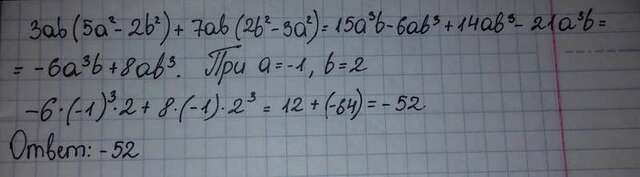 3ab(5a²-2b²)+7ab(2b²-3a²)=15a³b-6ab³+14ab³-21a³b=
=-6a³b+8ab³. При a=-1, b=2
-6·(-1)³·2+8·(-1)·2³=12+(-64)=-52
Ответ: -52